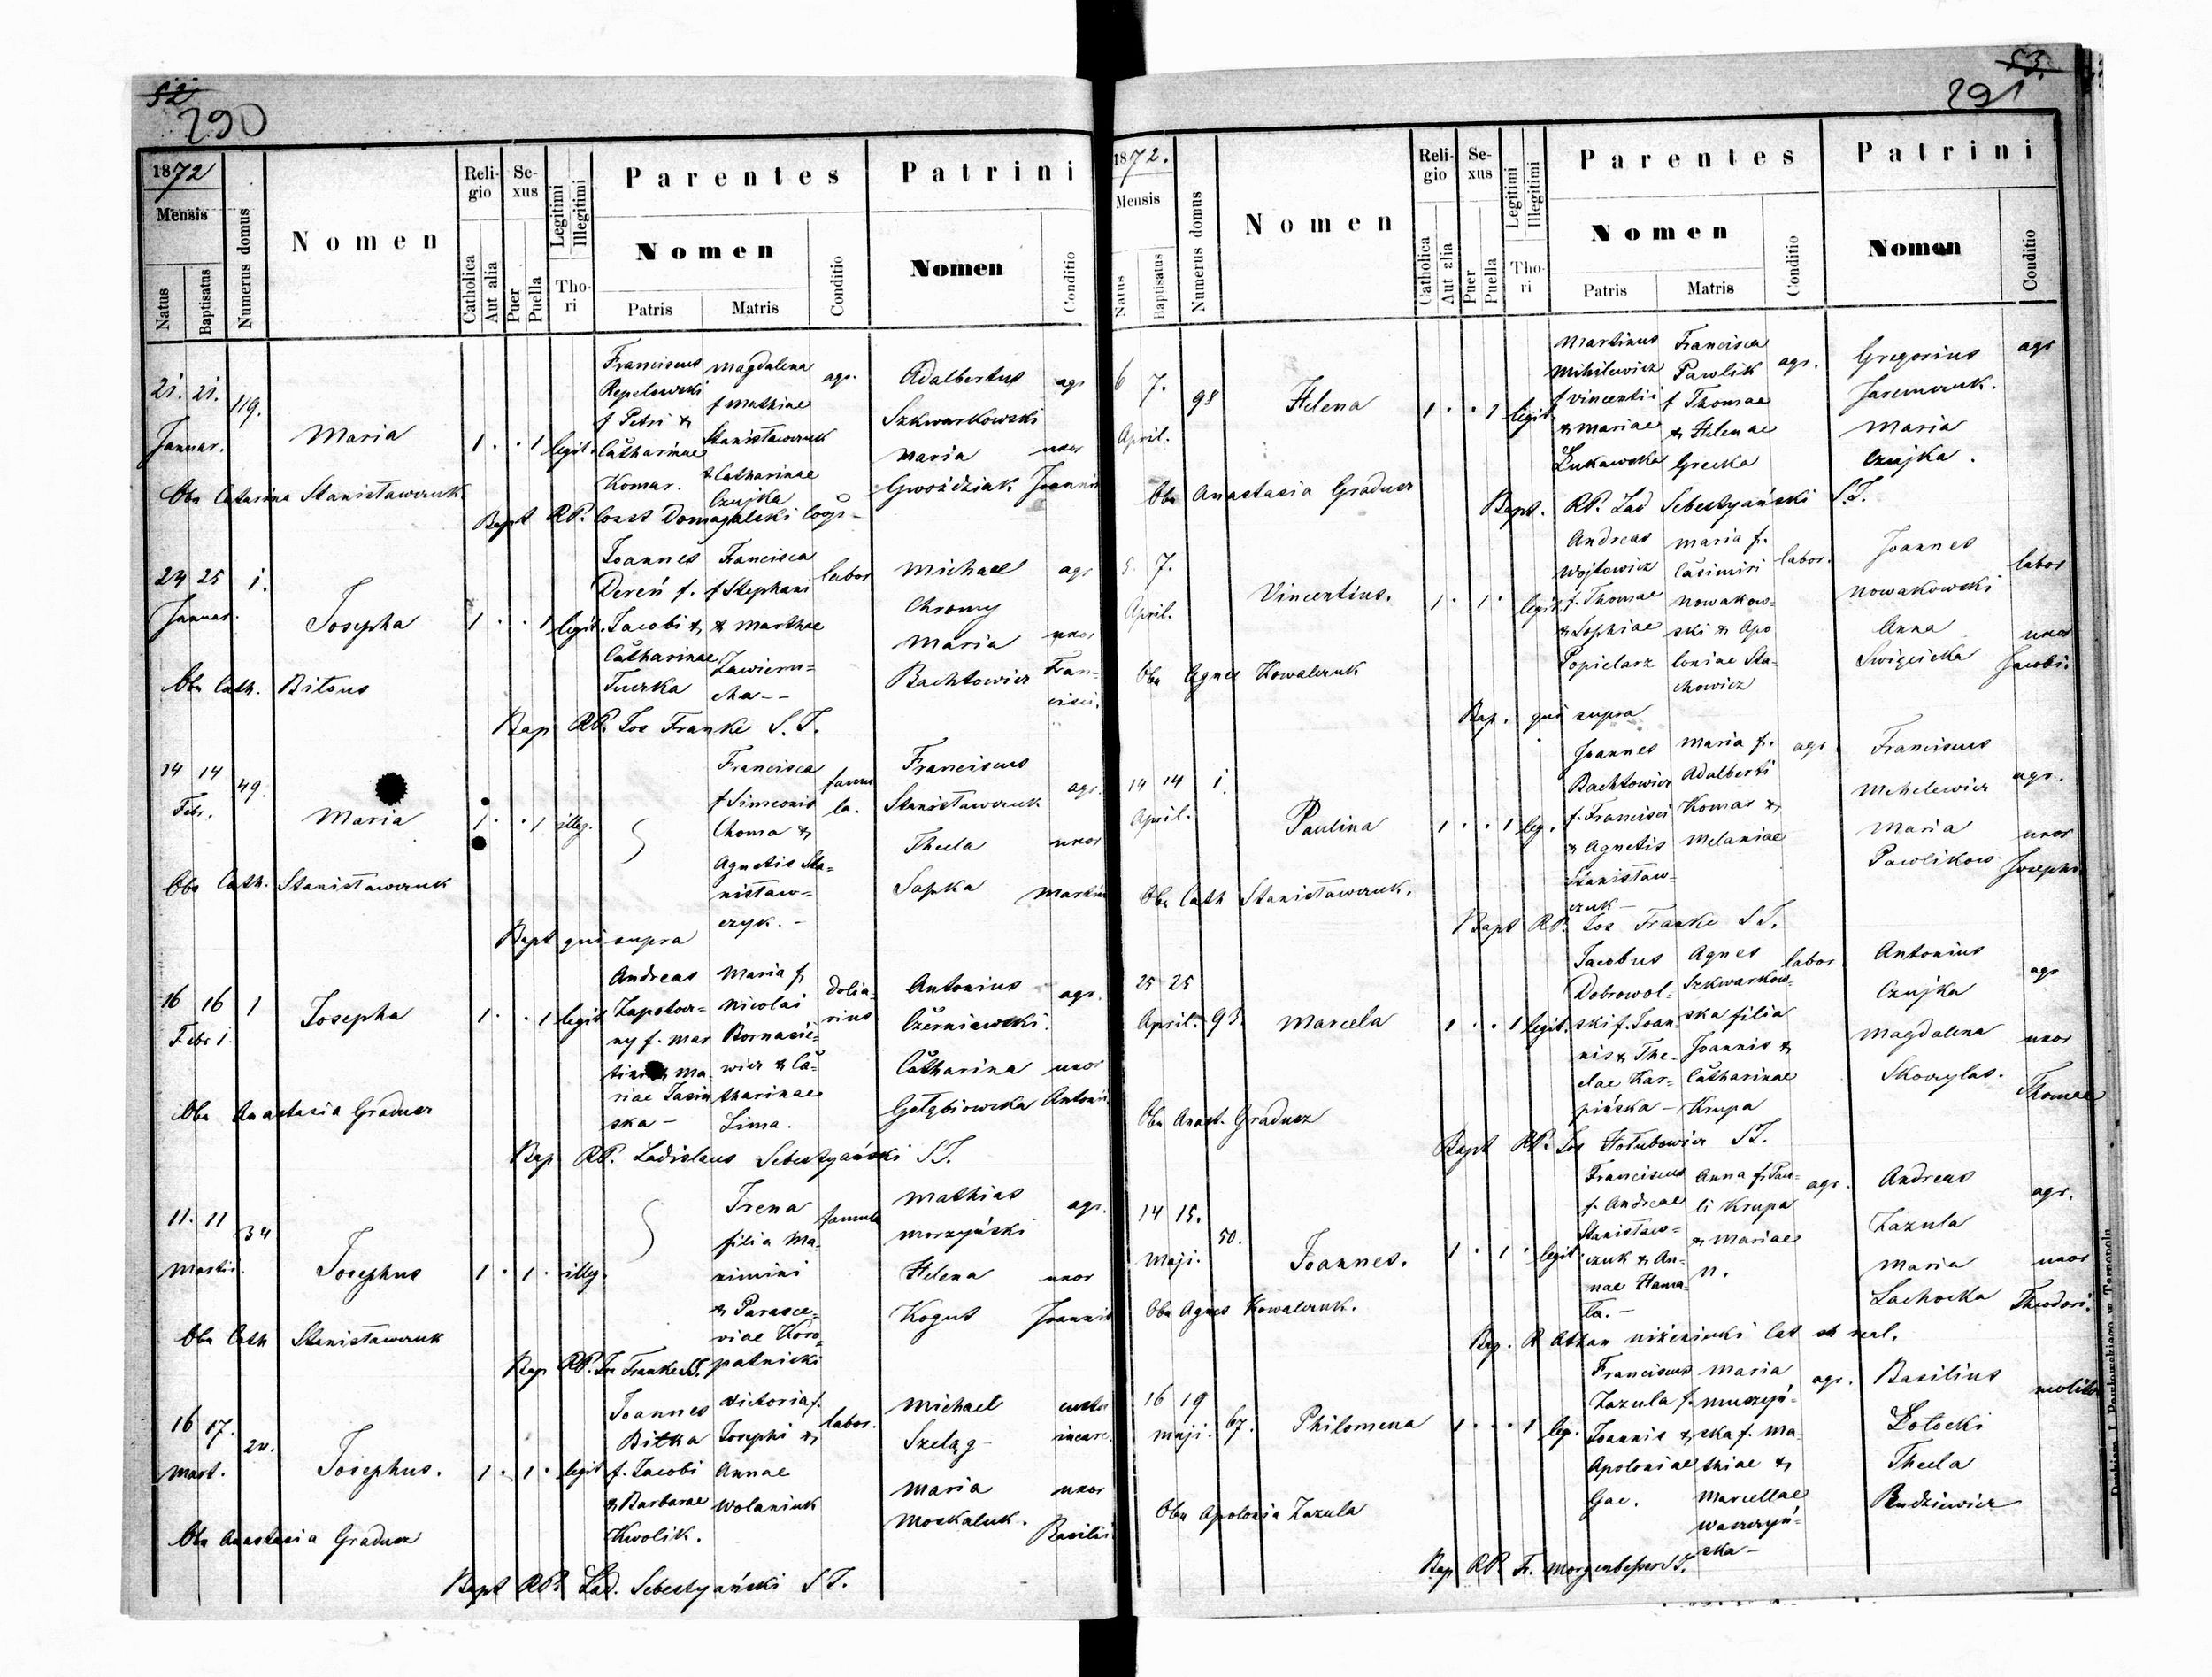 52
290
1872
Mensis
Natus
Baptisatus
Numerus domus
Nomen
Religio
Catholica
Aut alia
Sexus
Puer
Puella
Legitimi
Illegitimi
Thori
Parentes
Nomen
Patris
Matris
Conditio
Patrini
Nomen
Conditio
21. 21. 119.
Januar.
Maria
1 . . 1 legit.
Franciscus
Repelowski
f Petri &
Catharinae
Komar.
Magdalena
f Mathiae
Stanisławczuk
& Catharinae
Czujka
agr.
Adalbertus agr
Szkwarkowski
Maria uxor
Gwoździak Joannis
Obs Catarina Stanisławczuk
Bapt RP. Const Domagalski Coop-
24 25 1.
Januar.
Josepha
1 . . 1 legit.
Joannes
Dereń f.
Jacobi &
Catharinae
Tuczka
Francisca
f Stephani
& Marthae
Zawieru=
cha--
labor
Michael agr
Chromy
Maria uxor
Bachtowicz Fran=
cisci.
Obs Cath. Bitous
Bap RP. Jos Franke S.J.
14 14 49.
Febr.
Maria
1 . . 1 illeg.
Francisca
f Simeonis
Choma &
Agnetis Sta=
nisław=
czyk.-
famu
la.
Franciscus
Stanisławczuk agr.
Thecla uxor
Sapka Martini
Obs Cath. Stanisławczuk
Bapt qui supra
16 16 1
Febr.
Josepha
1 . . 1 legit
Andreas
Zapotocz=
ny f. Mar
tini & Ma.
riae Jasin
ska-
Maria f.
Nicolai
Bornasie=
wicz & Ca=
tharinae
Lima.
dolia-
rius
Antonius agr.
Czerniawski.
Catharina uxor
Gołębiowska Antonii
Obs Anastasia Gradusz
Bap RP. Ladislaus Sebestyański SJ.
11. 11 34
Martii.
Josephus
1 . 1 . illeg.
Irena
filia Ma=
ximini
& Parasce=
viae Koro=
patnicki
famula
Mathias agr.
Morzyński
Helena uxor
Kogut Joannis
Obs Cath Stanisławczuk
Bap RP. Jos Franke SJ.
16 17. 20.
Mart.
Josephus.
1 . 1 . legit
Joannes
Bitka
f. Jacobi
& Barbarae
Kwolik.
Victoria f.
Josephi &
Annae
Wolaniuk
labor.
Michael custos
Szeląg incarc.
Maria uxor
Moskaluk. Basilii
Obs Anastasia Gradusz
Bapt RP. Lad. Sebestyański SJ.
53.
291
1872.
Mensis
Natus
Baptisatus
Numerus domus
Nomen
Religio
Catholica
Aut alia
Sexus
Puer
Puella
Legitimi
Illegitimi
Thori
Parentes
Nomen
Patris
Matris
Conditio
Patrini
Nomen
Conditio
6 7. 98
April.
Helena
1 . . 1 legit
Martinus
Mihilewicz
f Vincentii
& Mariae
Łukawska
Francisca
Pawlik
f Thomae
& Helenae
Grecka
agr.
Gregorius agr
Jaremczuk.
Maria
Czujka.
Obs Anastasia Gradusz
Bapt. RP. Lad Sebestyański S.J.
5. 7.
April.
Vincentius.
1 . 1 . legit
Andreas
Wojtowicz
f. Thomae
& Sophiae
Popielarz
Maria f.
Casimiri
Nowakow=
ski & Apo
loniae Sta=
chowicz
labor.
Joannes labor
Nowakowski
Anna uxor
Święcicka Jacobi.
Obs Agnes Kowalczuk
Bap. qui supra
14 14 1.
April.
Paulina
1 . . 1 leg.
Joannes
Bachtowicz
f. Francisci
& Agnetis
Stanisław=
czuk-
Maria f.
Adalberti
Komar &
Melaniae
agr.
Franciscus
Mehelewicz agr.
Maria uxor
Pawlikow Josephi
Obs Cath Stanisławczuk.
Bapt RP. Jos Franke SJ.
25 25
April. 93.
Marcela
1 . . 1 legit.
Jacobus
Dobrowol=
ski f. Joan=
nis & The=
clae Kar=
pińska-
Agnes
Szkwarkow=
ska filia
Joannis &
Catharinae
Krupa
labor.
Antonius agr
Czujka
Magdalena uxor
Skoczylas. Thomae
Obs Anast. Gradusz
Bapt RP. Jos Hołubowicz SJ.
14 15. 50.
Maji.
Joannes.
1 . 1 . legit
Franciscus
f. Andreae
Stanisław=
czuk & An=
nae Hama=
ła.-
Anna f. Pau=
li Krupa
& Mariae
N.
agr.
Andreas agr.
Zazula
Maria uxor
Lachocka Theodori.
Obs Agnes Kowalczuk.
16 19
Maji. 67.
Philomena
1 . . 1 leg.
Franciscus
Zazula f.
Joannis &
Apoloniae
Gac.
Maria
Muszyń=
ska f. Ma=
thiae &
Marcellae
Waszczyń=
ska-
agr.
Basilius molitor
Łotocki
Thecla
Rudziewicz
Obs Apolonia Zazula
Bap RP Fr. Morgenbesser SJ.